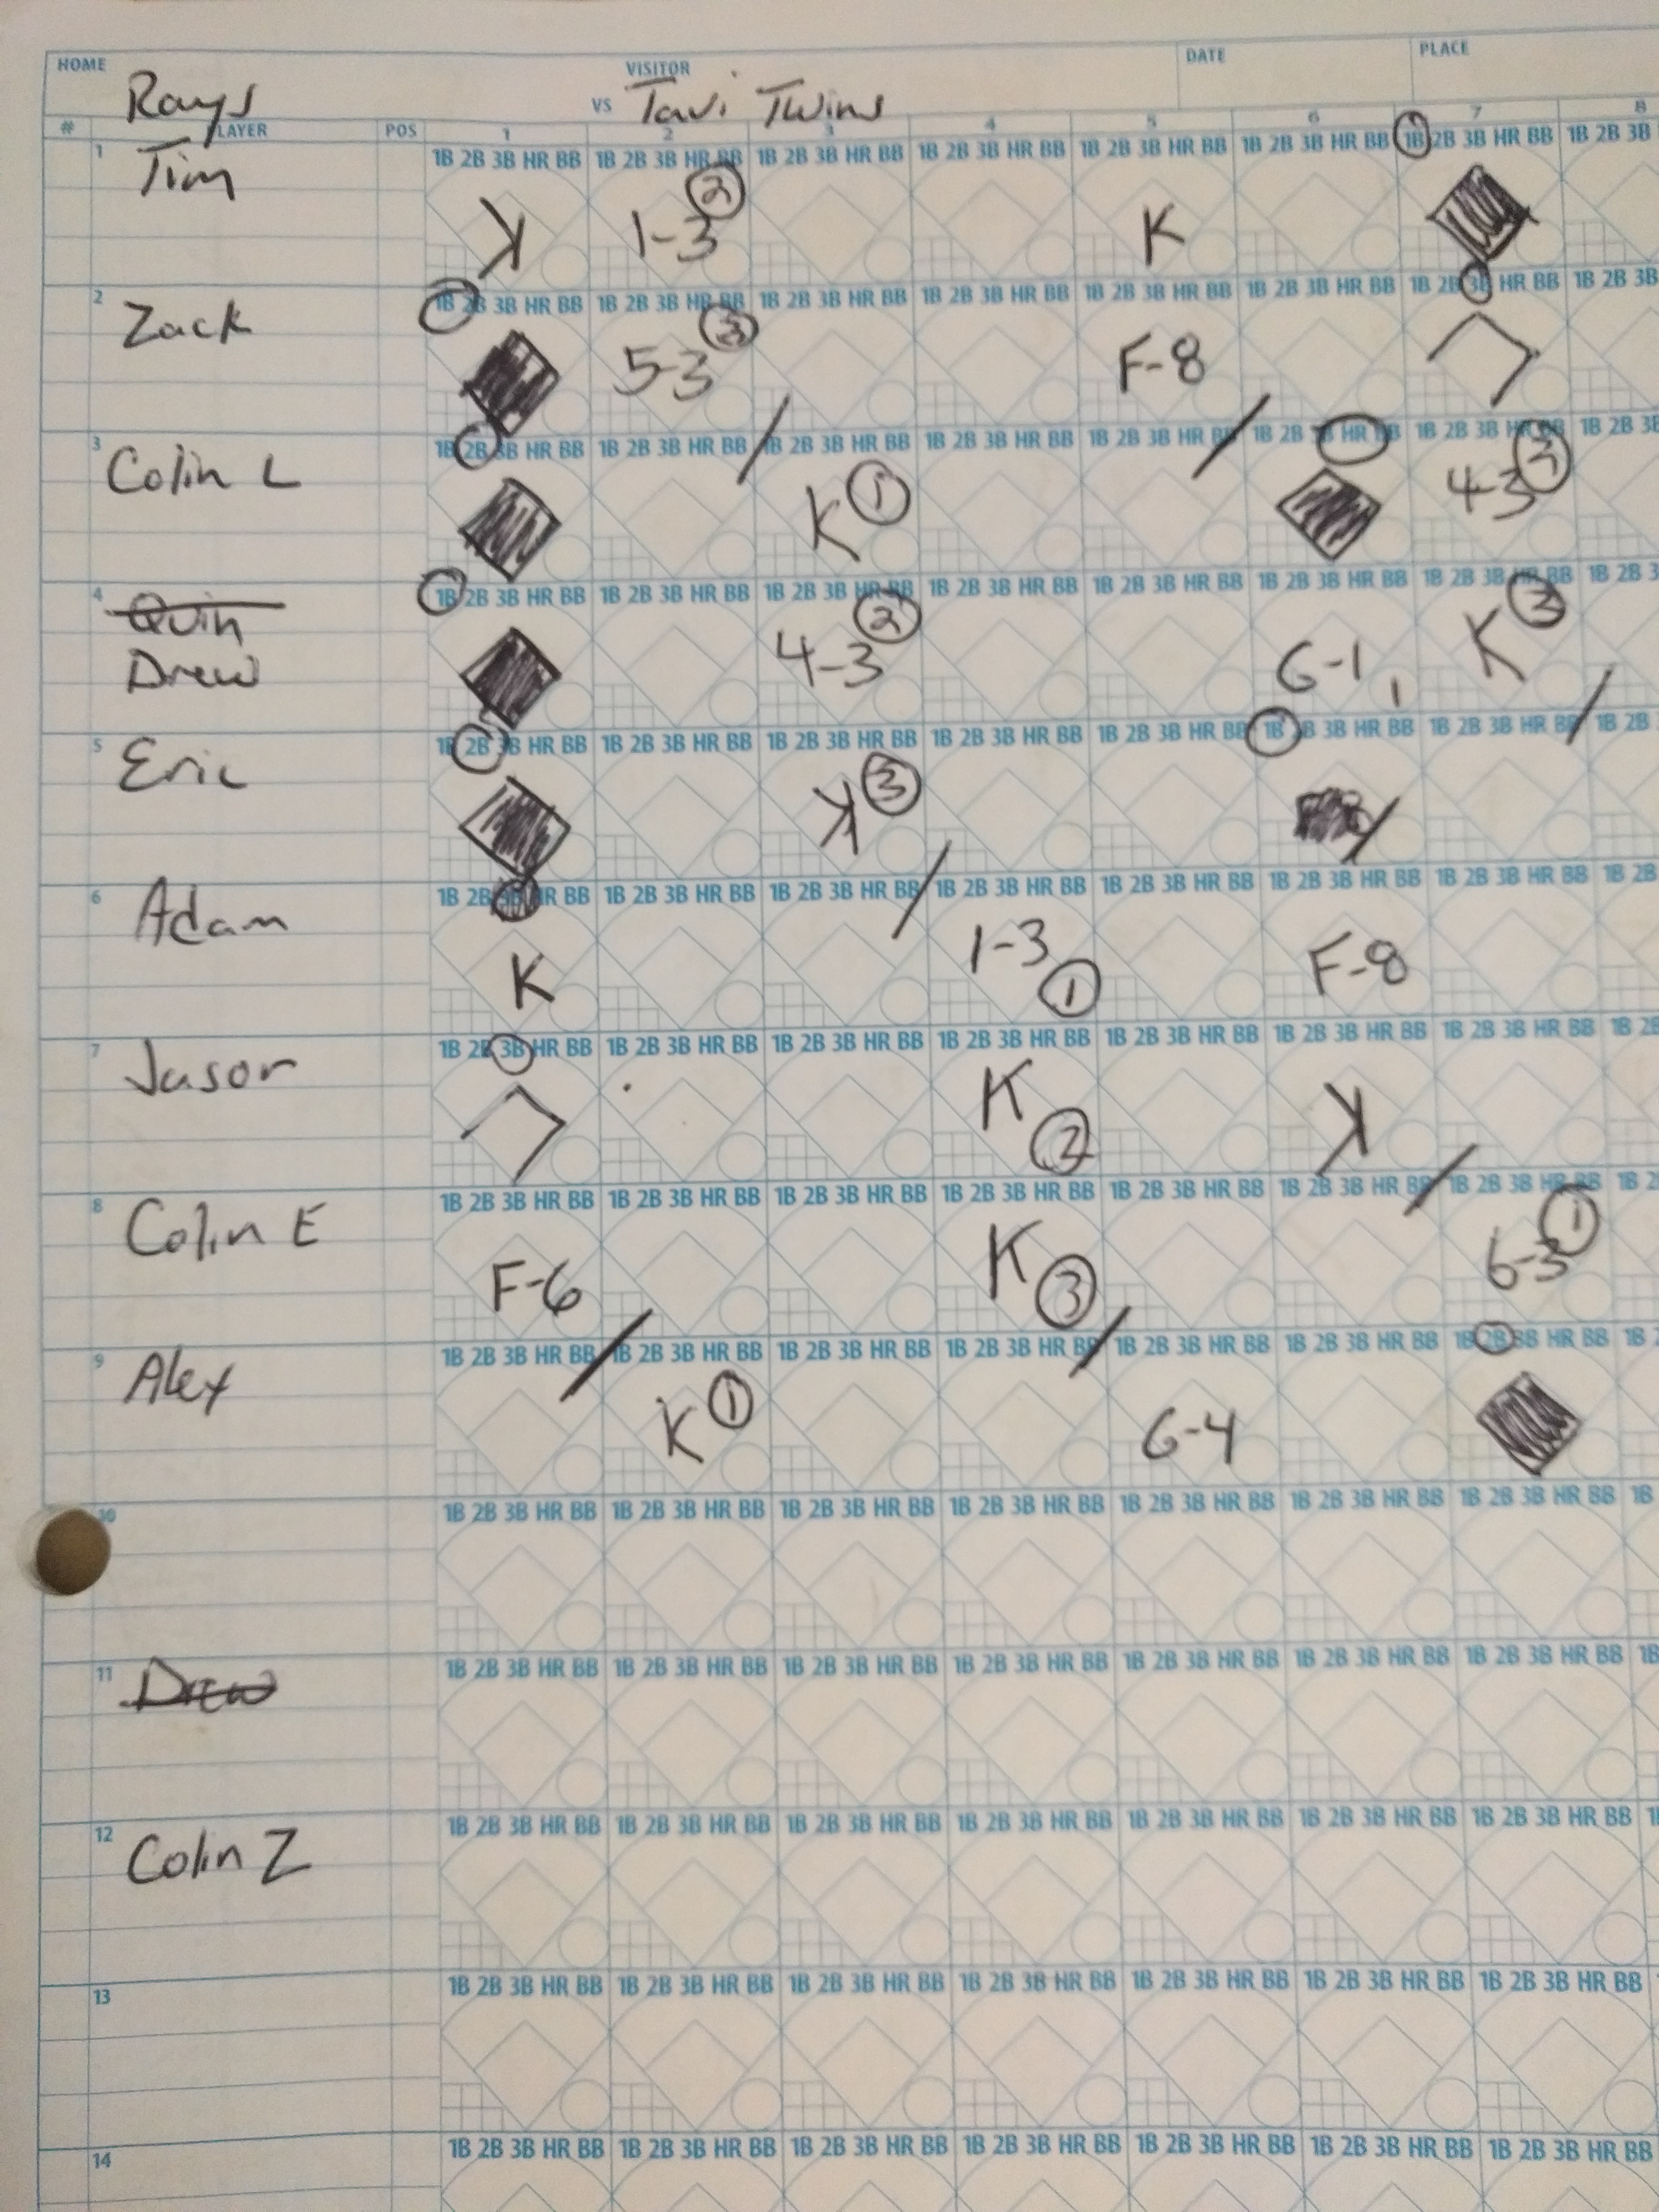 HOME VISITOR DATE PLACE
Rays vs Tavi Twins
# PLAYER POS 1 2 3 4 5 6 7 8
1B 2B 3B HR BB 1B 2B 3B HR BB 1B 2B 3B HR BB 1B 2B 3B HR BB 1B 2B 3B HR BB 1B 2B 3B HR BB 1B 2B 3B HR BB 1B 2B 3B
1 Tim K 1-3 2 K
1B 2B 3B HR BB 1B 2B 3B HR BB 1B 2B 3B HR BB 1B 2B 3B HR BB 1B 2B 3B HR BB 1B 2B 3B HR BB 1B 2B 3B HR BB 1B 2B 3B
2 Zack 5-3 3 F-8
1B 2B 3B HR BB 1B 2B 3B HR BB 1B 2B 3B HR BB 1B 2B 3B HR BB 1B 2B 3B HR BB 1B 2B 3B HR BB 1B 2B 3B HR BB 1B 2B 3B
3 Colin L K 1 4-3
1B 2B 3B HR BB 1B 2B 3B HR BB 1B 2B 3B HR BB 1B 2B 3B HR BB 1B 2B 3B HR BB 1B 2B 3B HR BB 1B 2B 3B HR BB 1B 2B 3
4 Quin
Drew 4-3 2 6-1 1 K
1B 2B 3B HR BB 1B 2B 3B HR BB 1B 2B 3B HR BB 1B 2B 3B HR BB 1B 2B 3B HR BB 1B 2B 3B HR BB 1B 2B 3B HR BB 1B 2B
5 Eric K 3
1B 2B HR BB 1B 2B 3B HR BB 1B 2B 3B HR BB 1B 2B 3B HR BB 1B 2B 3B HR BB 1B 2B 3B HR BB 1B 2B 3B HR BB 1B 2B
6 Adam K 1-3 1 F-8
1B 2B 3B HR BB 1B 2B 3B HR BB 1B 2B 3B HR BB 1B 2B 3B HR BB 1B 2B 3B HR BB 1B 2B 3B HR BB 1B 2B 3B HR BB 1B 2B
7 Jason K 2 K
1B 2B 3B HR BB 1B 2B 3B HR BB 1B 2B 3B HR BB 1B 2B 3B HR BB 1B 2B 3B HR BB 1B 2B 3B HR BB 1B 2B 3B HR BB 1B 2
8 Colin E F-6 K 3 6-3 1
1B 2B 3B HR BB 1B 2B 3B HR BB 1B 2B 3B HR BB 1B 2B 3B HR BB 1B 2B 3B HR BB 1B 2B 3B HR BB 1B 2B 3B HR BB 1B 2
9 Alex K 1 6-4
1B 2B 3B HR BB 1B 2B 3B HR BB 1B 2B 3B HR BB 1B 2B 3B HR BB 1B 2B 3B HR BB 1B 2B 3B HR BB 1B 2B 3B HR BB 1B
10
1B 2B 3B HR BB 1B 2B 3B HR BB 1B 2B 3B HR BB 1B 2B 3B HR BB 1B 2B 3B HR BB 1B 2B 3B HR BB 1B 2B 3B HR BB 1B
11 Drew
1B 2B 3B HR BB 1B 2B 3B HR BB 1B 2B 3B HR BB 1B 2B 3B HR BB 1B 2B 3B HR BB 1B 2B 3B HR BB 1B 2B 3B HR BB
12 Colin Z
1B 2B 3B HR BB 1B 2B 3B HR BB 1B 2B 3B HR BB 1B 2B 3B HR BB 1B 2B 3B HR BB 1B 2B 3B HR BB 1B 2B 3B HR BB
13
1B 2B 3B HR BB 1B 2B 3B HR BB 1B 2B 3B HR BB 1B 2B 3B HR BB 1B 2B 3B HR BB 1B 2B 3B HR BB 1B 2B 3B HR BB
14